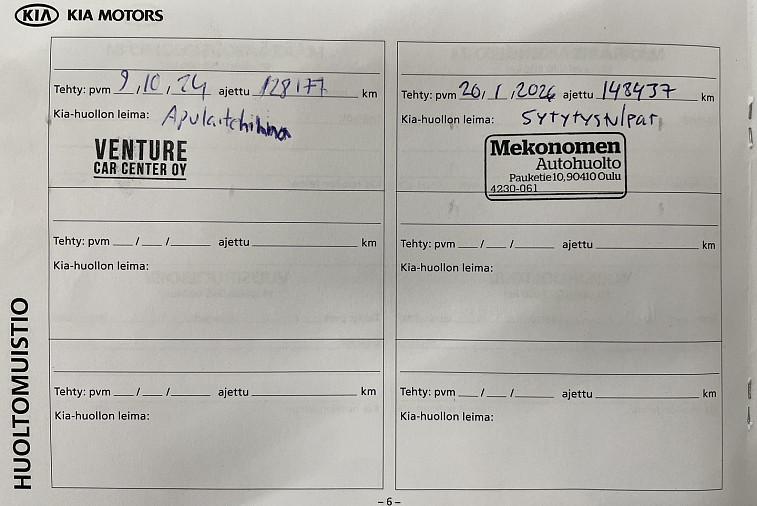 KIA KIA MOTORS
Tehty: pvm 9,10,24 ajettu 128177 km
Kia-huollon leima: Apulaitehihna
VENTURE
CAR CENTER OY
Tehty: pvm __/__/____ ajettu ____ km
Kia-huollon leima:
Tehty: pvm __/__/____ ajettu ____ km
Kia-huollon leima:
Tehty: pvm 20,1,2026 ajettu 148437 km
Kia-huollon leima: Sytytystulpat
Mekonomen
Autohuolto
Pauketie 10, 90410 Oulu
4230-061
Tehty: pvm __/__/____ ajettu ____ km
Kia-huollon leima:
Tehty: pvm __/__/____ ajettu ____ km
Kia-huollon leima:
HUOLTOMUISTIO
– 6 –